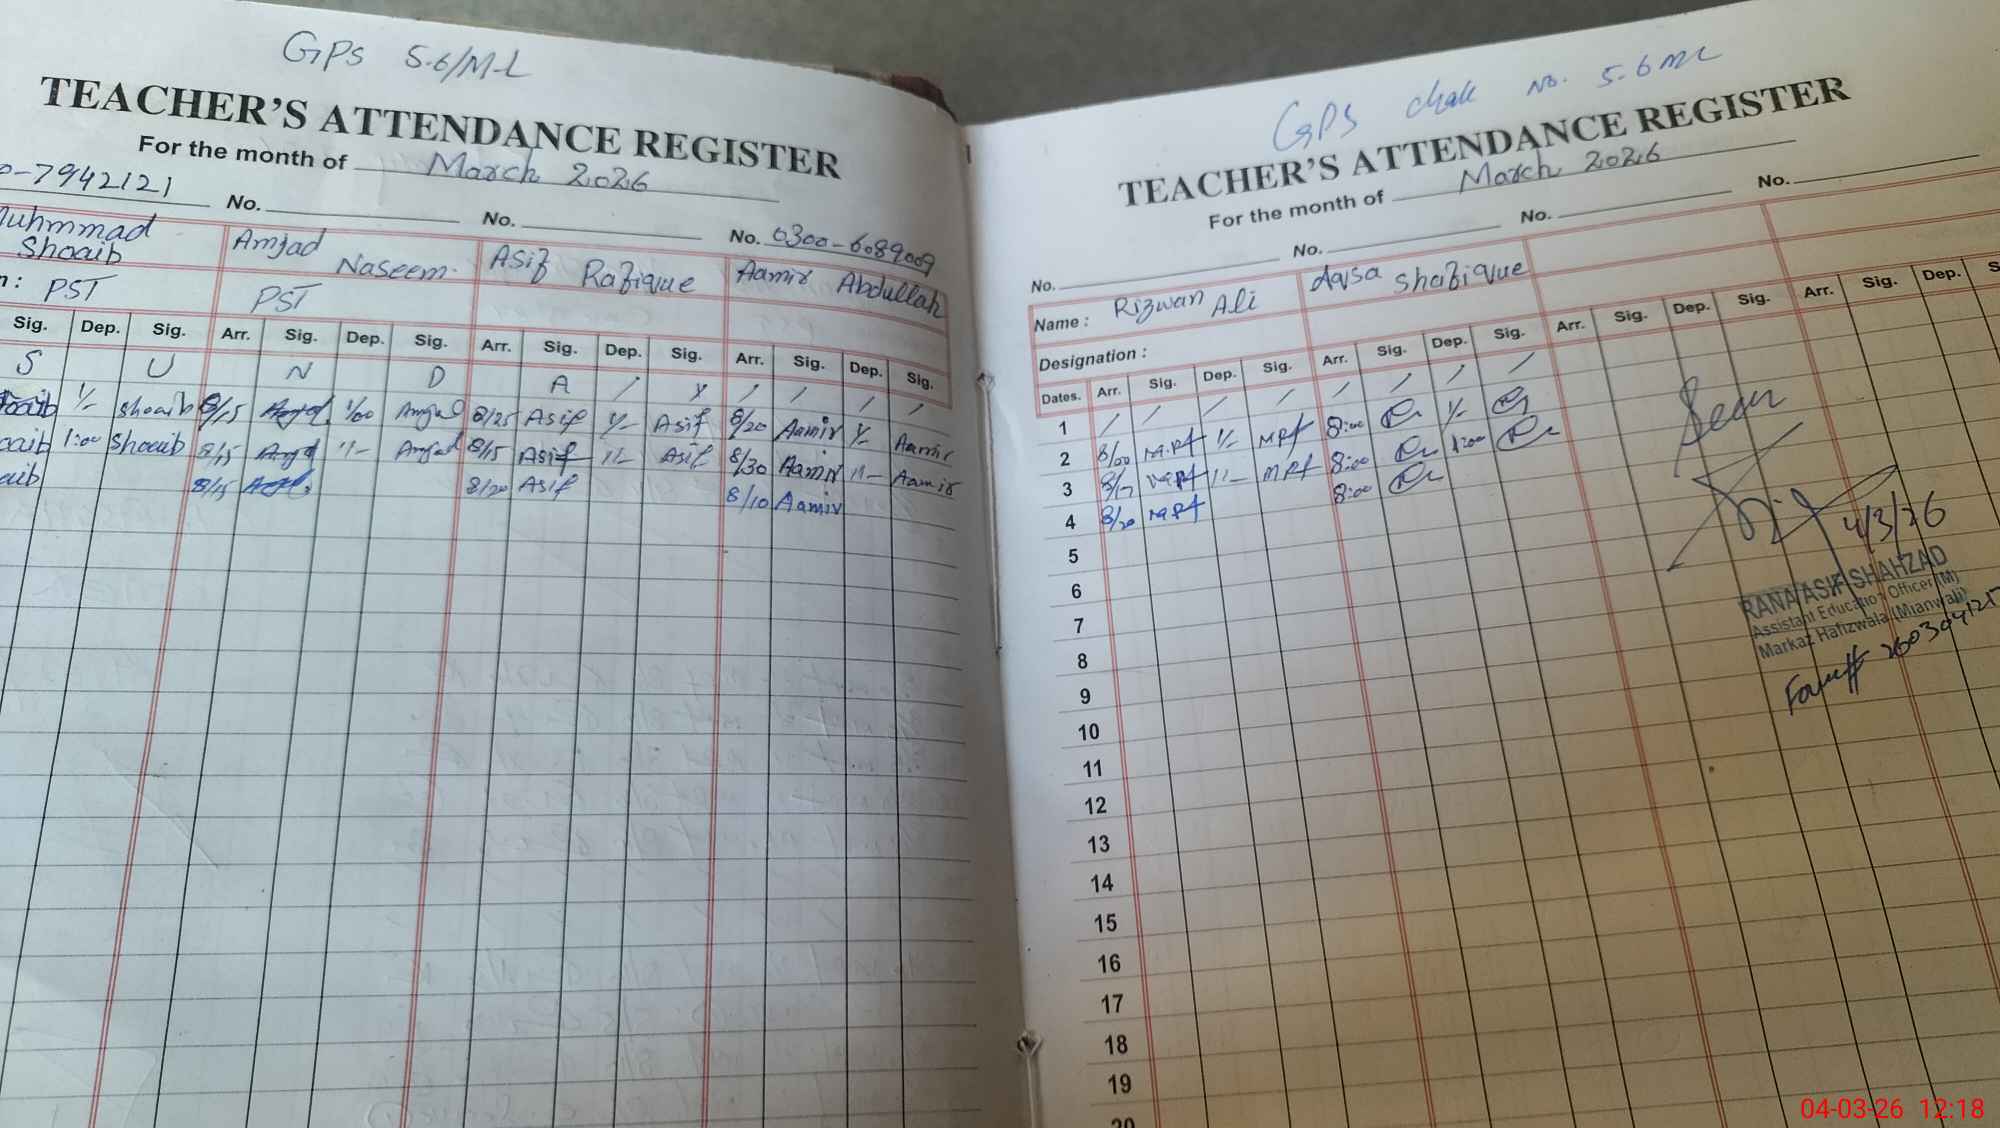 GPS 5-6/M-L
TEACHER'S ATTENDANCE REGISTER
For the month of March 2026
-7942121 No. No. No. 0300-6089009
Muhmmad Shoaib Amjad Naseem. Asif Rafique Aamir Abdullah
n: PST PST
Sig. Dep. Sig. Arr. Sig. Dep. Sig. Arr. Sig. Dep. Sig. Arr. Sig. Dep. Sig.
S U N D A / Y / / / /
1/- Shoaib 8/15 1/00 Amjad 8/25 Asif 1/- Asif 8/20 Aamir 1/- Aamir
oaib 1:00 Shoaib 8/15 Amjd 1/- Amjad 8/15 Asif 1/- Asif 8/30 Aamir 1/- Aamir
aib 8/15 8/20 Asif 8/10 Aamir
GPS Chak No. 5-6 ML
TEACHER'S ATTENDANCE REGISTER
For the month of March 2026
No. No. No. No.
Name : Rizwan Ali Aqsa Shafique
Designation :
Dates. Arr. Sig. Dep. Sig. Arr. Sig. Dep. Sig. Arr. Sig. Dep. Sig. Arr. Sig. Dep. S
1 / / / / / / / /
2 8/00 1/- 8:00 1/-
3 1/- 8:00 1:00
4 8/20 8:00
5
6
7
8
9
10
11
12
13
14
15
16
17
18
19
20
Seen
4/3/26
RANA ASIF SHAHZAD
Assistant Education Officer (M)
Markaz Hafizwala (Mianwali)
04-03-26 12:18